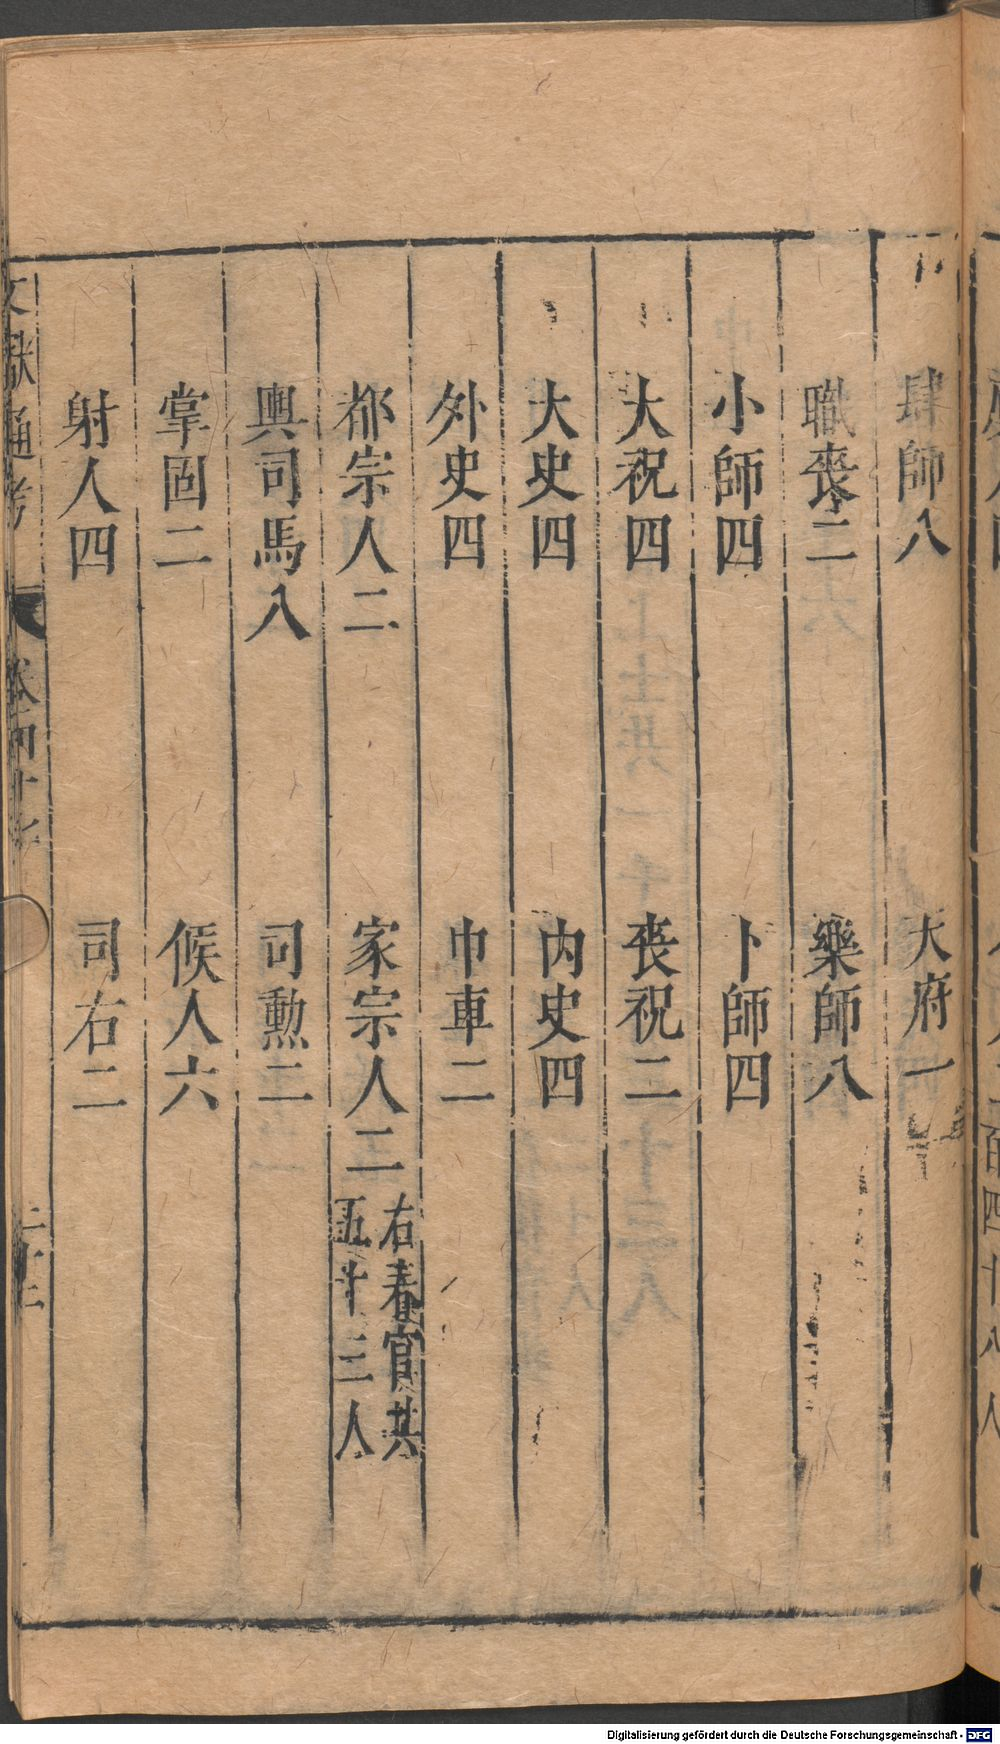 肆師八　大府一
職喪二　樂師八
小師四　卜師四
大祝四　喪祝二
大史四　內史四
外史四　巾車二
都宗人二　家宗人二右春官共五十三人
輿司馬八　司勲二
掌固二　候人六
射人四　司右二
文獻通考　卷四十七
Digitalisierung gefördert durch die Deutsche Forschungsgemeinschaft - DFG